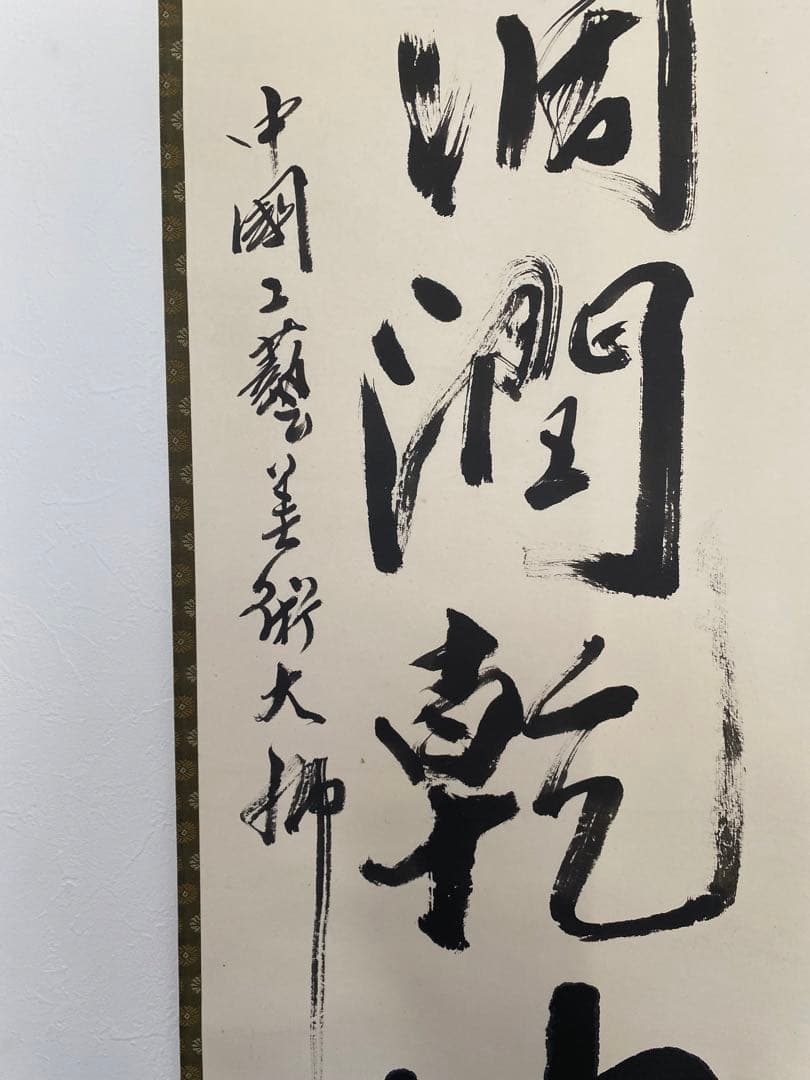 潤乾
中國工藝美術大師